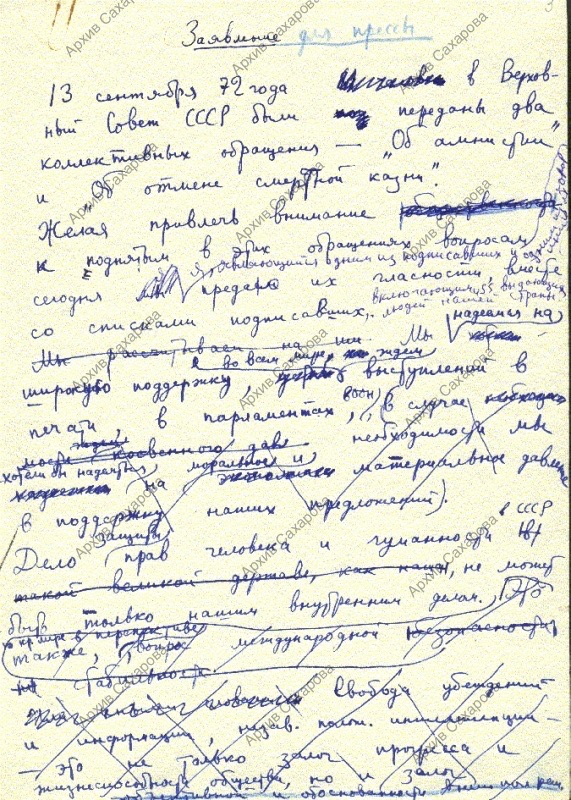 Заявление для прессы
13 сентября 72 года в Верхов-
ный Совет СССР были переданы два
коллективных обращения — „Об амнистии"
и „Об отмене смертной казни".
Желая привлечь внимание
к поднятым в этих обращениях вопросам,
я, являющийся одним из подписавших и
сегодня предаю их гласности вместе
включающими 55 выдающихся
со списками подписавших, людей нашей страны.
Мы рассчитываем на них. Мы надеемся на
во всем мире, ждем
широкую поддержку, выступлений в
печати, в парламентах, (в случае
необходимости мы
хотели бы надеяться на моральное и материальное давление
в поддержку наших предложений).
Дело защиты прав человека и гуманности в СССР
такой великой державе, как наша, не может
быть только нашим внутренним делом. Это
также, в перспективе, вопрос международной безопасности
Свобода убеждений
и информации, незав. полит. интеллигенции —
— это не только залог прогресса и
жизнеспособности общества, но и залог
и обоснованности
Архив Сахарова